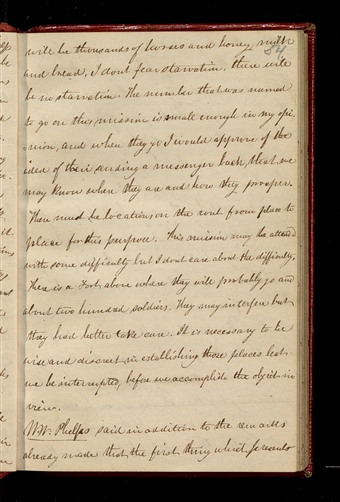 will be thousands of horses and honey, milk
84
and bread, I dont fear starvation, there will
be no starvation. The number that was named
to go on this mission is small enough in my opi-
nion, and when they go I would approve of the
idea of their sending a messenger back that we
may know where they are and how they prosper.
There must be locations on the rout from place to
place for this purpose. This mission may be attend
with some difficulty but I dont care about the difficulty,
There is a Fort above where they will probably go and
about two hundred soldiers. They may interfere but
they had better take care. It is necessary to be
wise and discreet in establishing those places lest
we be interrupted, before we accomplish the object in
view.
W. W. Phelps said in addition to the remarks
already made that the first thing which presents